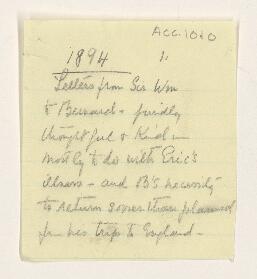 ACC. 1040
1894 1.
Letters from Sir Wm
to Bernard - friendly
thoughtful & kind -
mostly to do with Eric's
illness - and B's necessity
to return sooner than planned
from his trips to England -